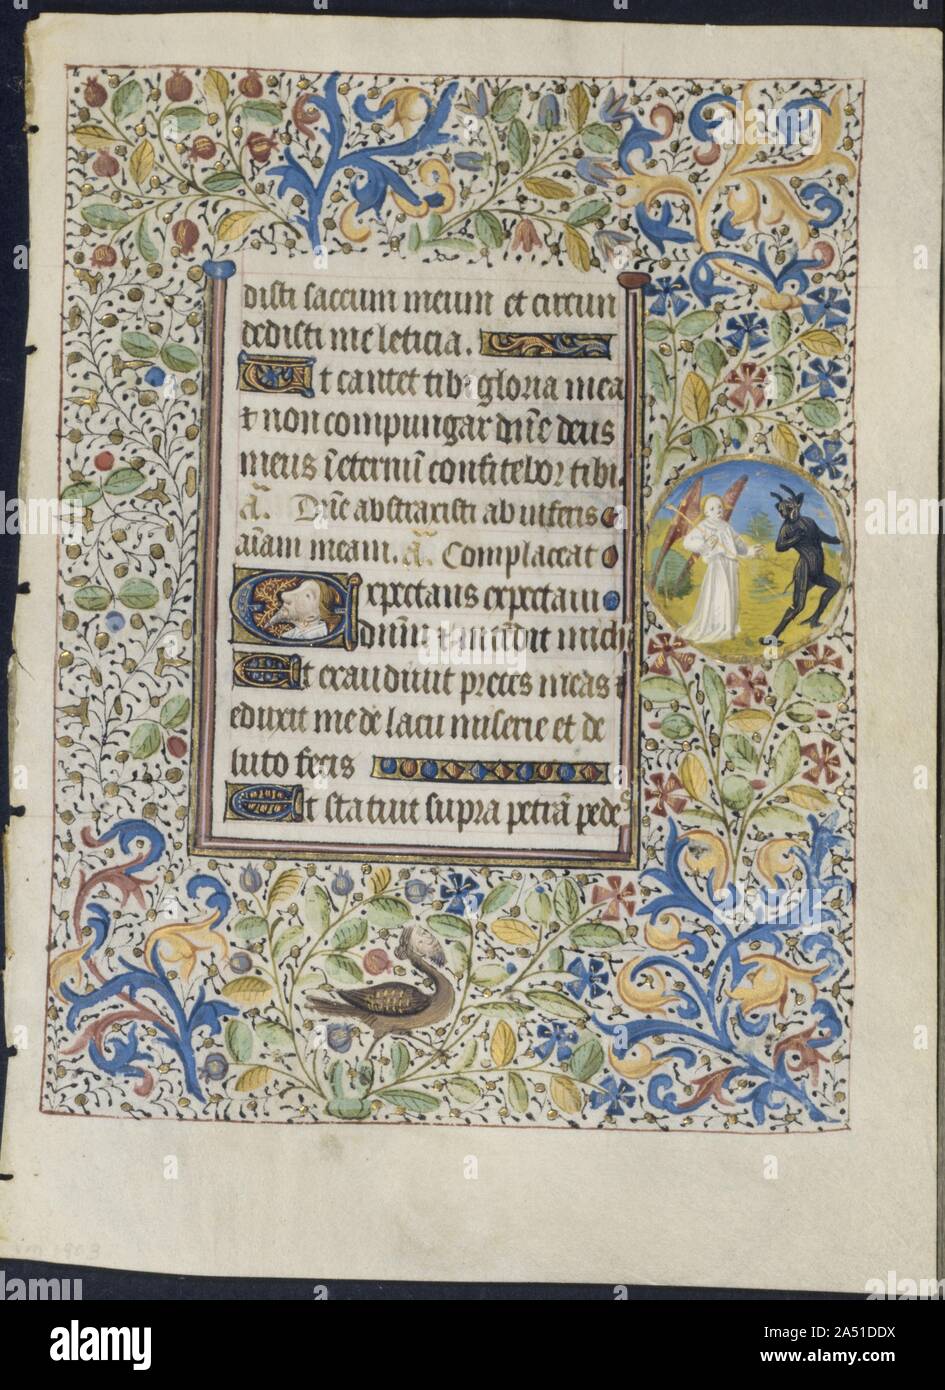 disti saccum meum et circun
dedisti me leticia.
Ut cantet tibi gloria mea
⁊ non compungar dñe deus
meus ĩ eternũ confitebor tibi.
A͂. Dñe abstraxisti ab inferis
aĩam meam. a͂. Complaceat
Expectans expectaui
dñm ⁊ intendit michi
Et exaudiuit preces meas ⁊
eduxit me de lacu miserie et de
luto fecis
Et statuit supra petrã pedes
alamy
Image ID: 2A51DDX
www.alamy.com